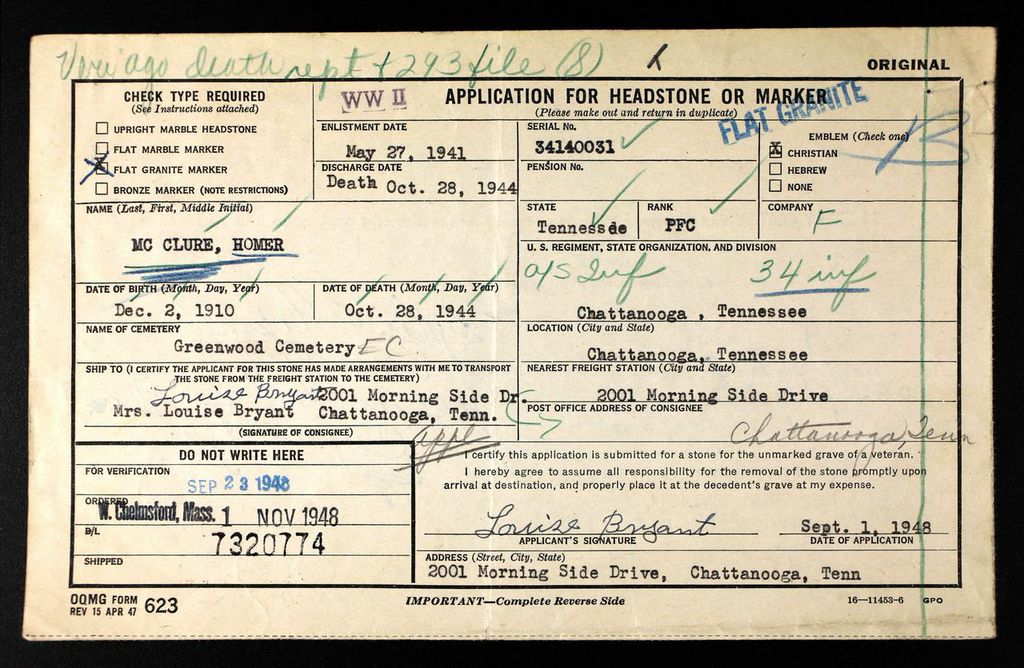 Veri ago death rept + 293 file (8)
ORIGINAL
CHECK TYPE REQUIRED
(See Instructions attached)
UPRIGHT MARBLE HEADSTONE
FLAT MARBLE MARKER
X FLAT GRANITE MARKER
BRONZE MARKER (NOTE RESTRICTIONS)
WW II
APPLICATION FOR HEADSTONE OR MARKER
(Please make out and return in duplicate)
FLAT GRANITE
ENLISTMENT DATE
May 27, 1941
DISCHARGE DATE
Death Oct. 28, 1944
SERIAL No.
34140031
PENSION No.
EMBLEM (Check one)
X CHRISTIAN
HEBREW
NONE
B
NAME (Last, First, Middle Initial)
MC CLURE, HOMER
STATE
Tennessee
RANK
PFC
COMPANY
F
U. S. REGIMENT, STATE ORGANIZATION, AND DIVISION
34 inf
DATE OF BIRTH (Month, Day, Year)
Dec. 2, 1910
DATE OF DEATH (Month, Day, Year)
Oct. 28, 1944
Chattanooga , Tennessee
NAME OF CEMETERY
Greenwood Cemetery EC
LOCATION (City and State)
Chattanooga, Tennessee
SHIP TO (I CERTIFY THE APPLICANT FOR THIS STONE HAS MADE ARRANGEMENTS WITH ME TO TRANSPORT
THE STONE FROM THE FREIGHT STATION TO THE CEMETERY)
Louise Bryant 2001 Morning Side Dr.
Mrs. Louise Bryant Chattanooga, Tenn.
(SIGNATURE OF CONSIGNEE)
NEAREST FREIGHT STATION (City and State)
2001 Morning Side Drive
POST OFFICE ADDRESS OF CONSIGNEE
Chattanooga, Tenn
appl
DO NOT WRITE HERE
FOR VERIFICATION
SEP 23 1948
ORDERED
W. Chelmsford, Mass. 1 NOV 1948
B/L
7320774
SHIPPED
I certify this application is submitted for a stone for the unmarked grave of a veteran.
I hereby agree to assume all responsibility for the removal of the stone promptly upon
arrival at destination, and properly place it at the decedent's grave at my expense.
Louise Bryant
APPLICANT'S SIGNATURE
Sept. 1, 1948
DATE OF APPLICATION
ADDRESS (Street, City, State)
2001 Morning Side Drive, Chattanooga, Tenn
OQMG FORM
REV 15 APR 47 623
IMPORTANT—Complete Reverse Side
16—11453-6 GPO